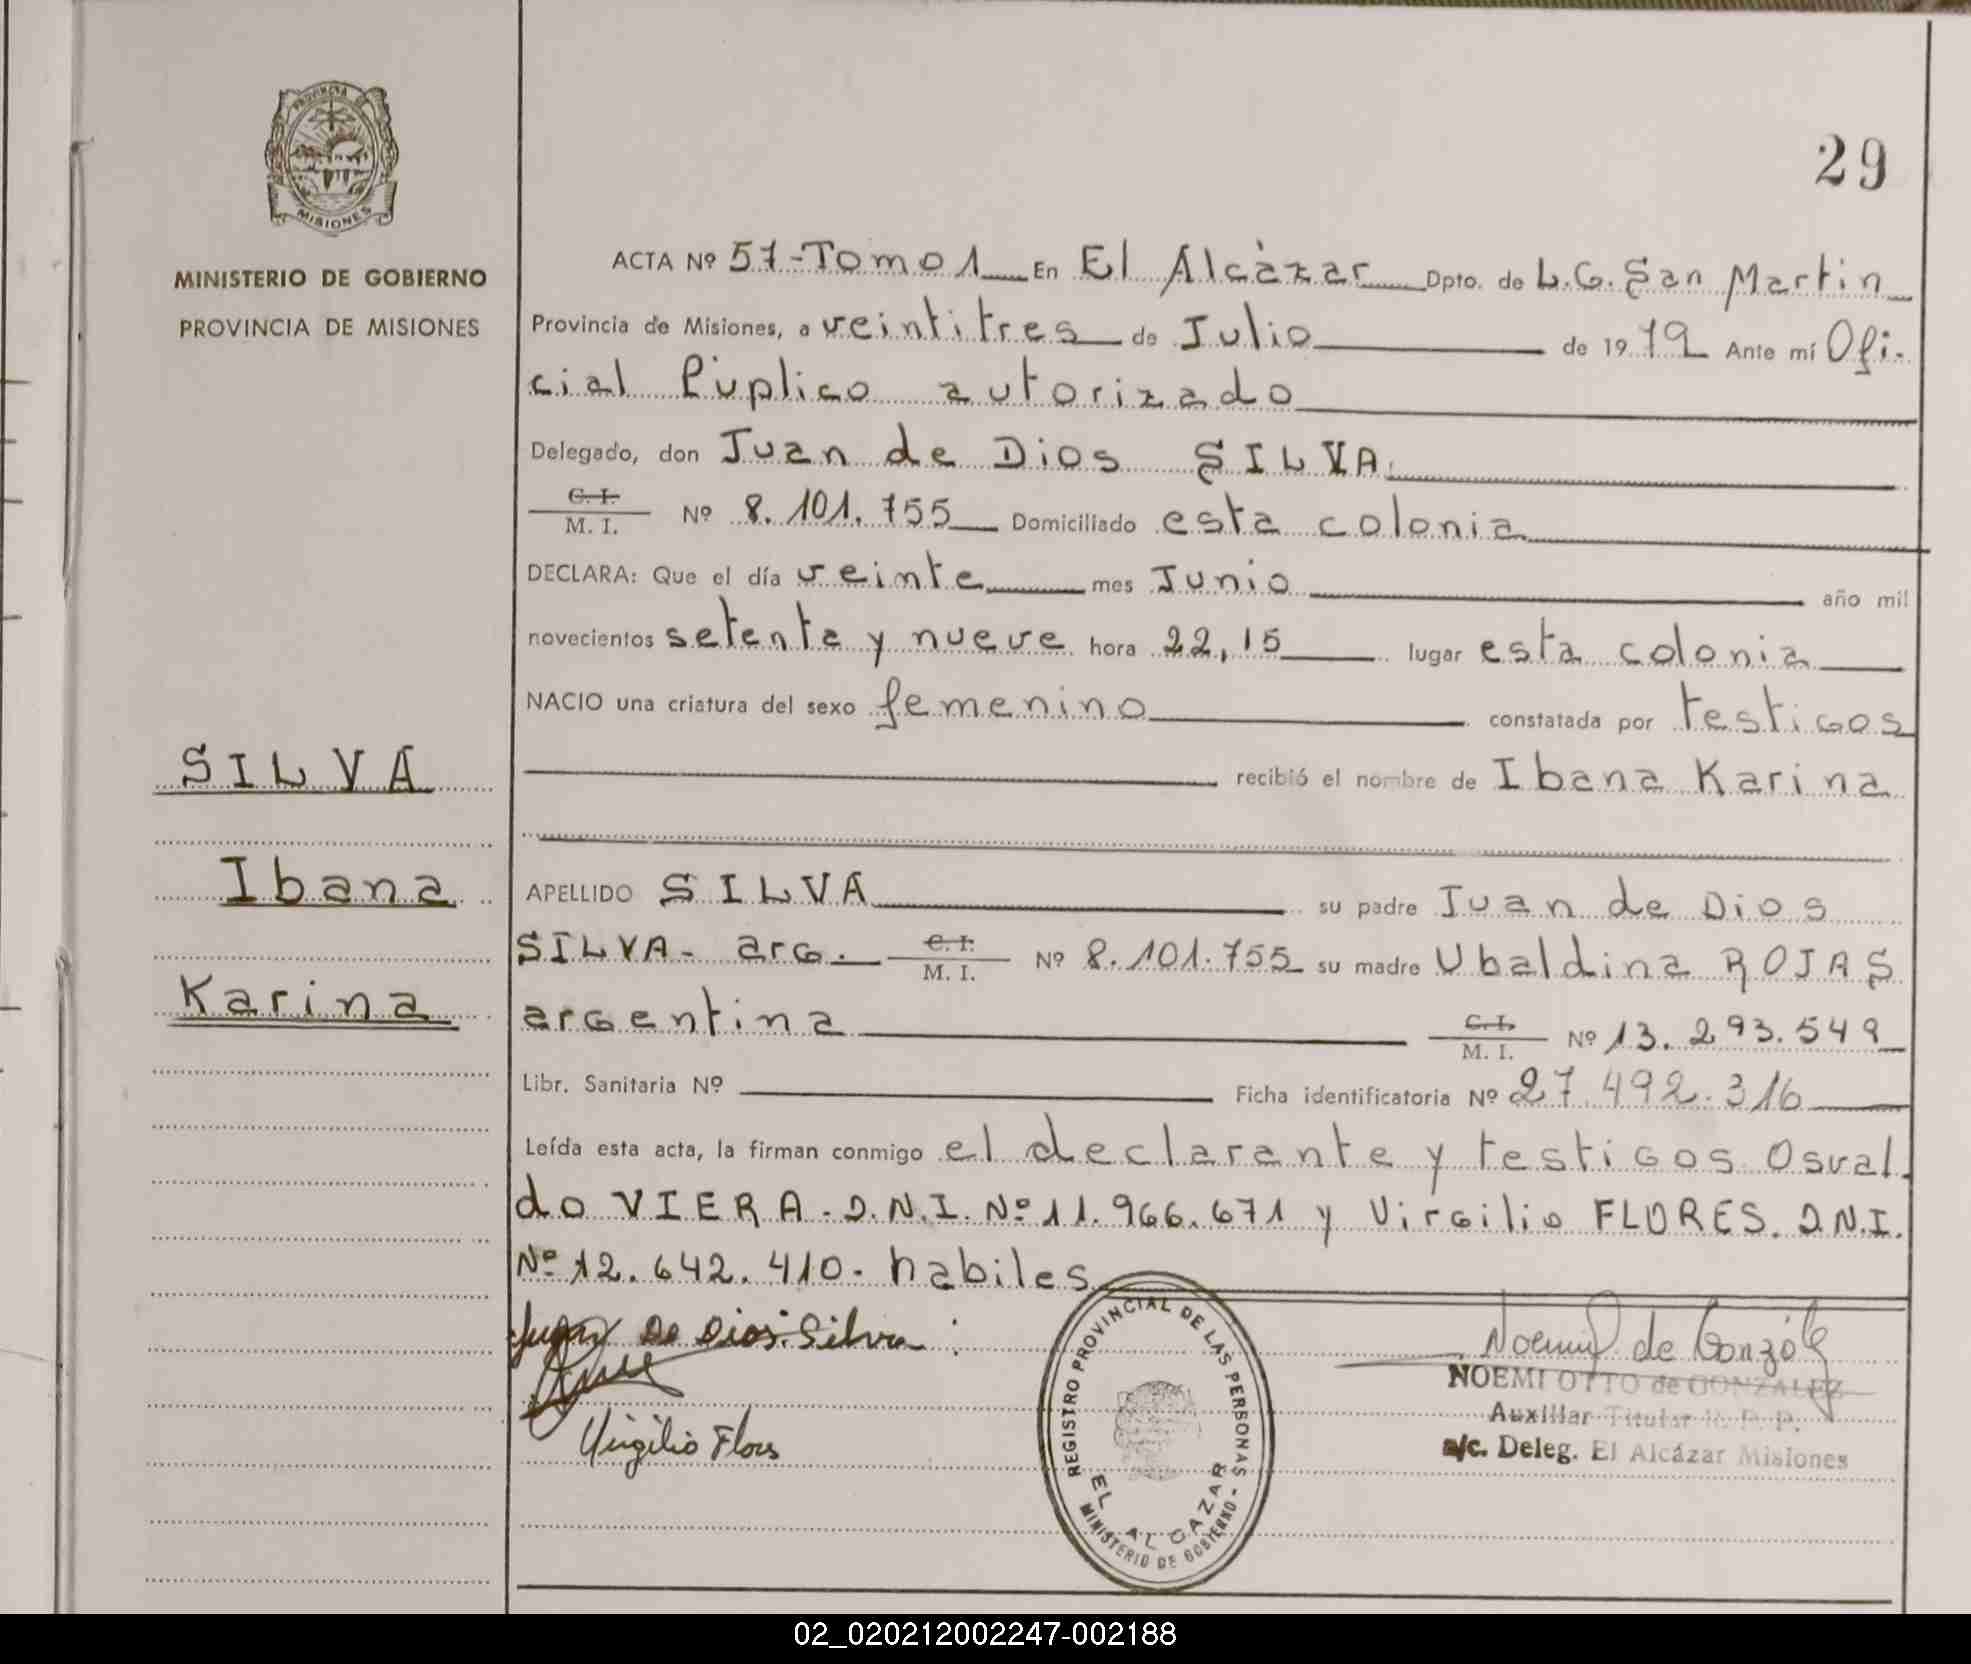 PROVINCIA DE
MISIONES
MINISTERIO DE GOBIERNO
PROVINCIA DE MISIONES
SILVA
Ibana
Karina
29
ACTA Nº 57-Tomo 1 En El Alcázar Dpto. de L.G. San Martin
Provincia de Misiones, a veintitres de Julio de 1979 Ante mí Ofi-
cial Púplico autorizado
Delegado, don Juan de Dios SILVA
C. I.
M. I. Nº 8.101.755 Domiciliado esta colonia
DECLARA: Que el día veinte mes Junio año mil
novecientos setenta y nueve hora 22,15 lugar esta colonia
NACIO una criatura del sexo femenino constatada por testigos
recibió el nombre de Ibana Karina
APELLIDO SILVA su padre Juan de Dios
SILVA- arg. C. I. M. I. Nº 8.101.755 su madre Ubaldina ROJAS
argentina C. I. M. I. Nº 13.293.549
Libr. Sanitaria Nº Ficha identificatoria Nº 27.492.316
Leída esta acta, la firman conmigo el declarante y testigos Osval-
do VIERA. D.N.I. Nº 11.966.671 y Virgilio FLORES. D.N.I.
Nº 12.642.410. habiles
Juan De Dios Silva
Virgilio Flores
REGISTRO PROVINCIAL DE LAS PERSONAS
EL ALCAZAR
MINISTERIO DE GOBIERNO
Noemi de González
NOEMI OTTO de GONZALEZ
Auxiliar Titular R. P. P.
a/c. Deleg. El Alcázar Misiones
02_020212002247-002188